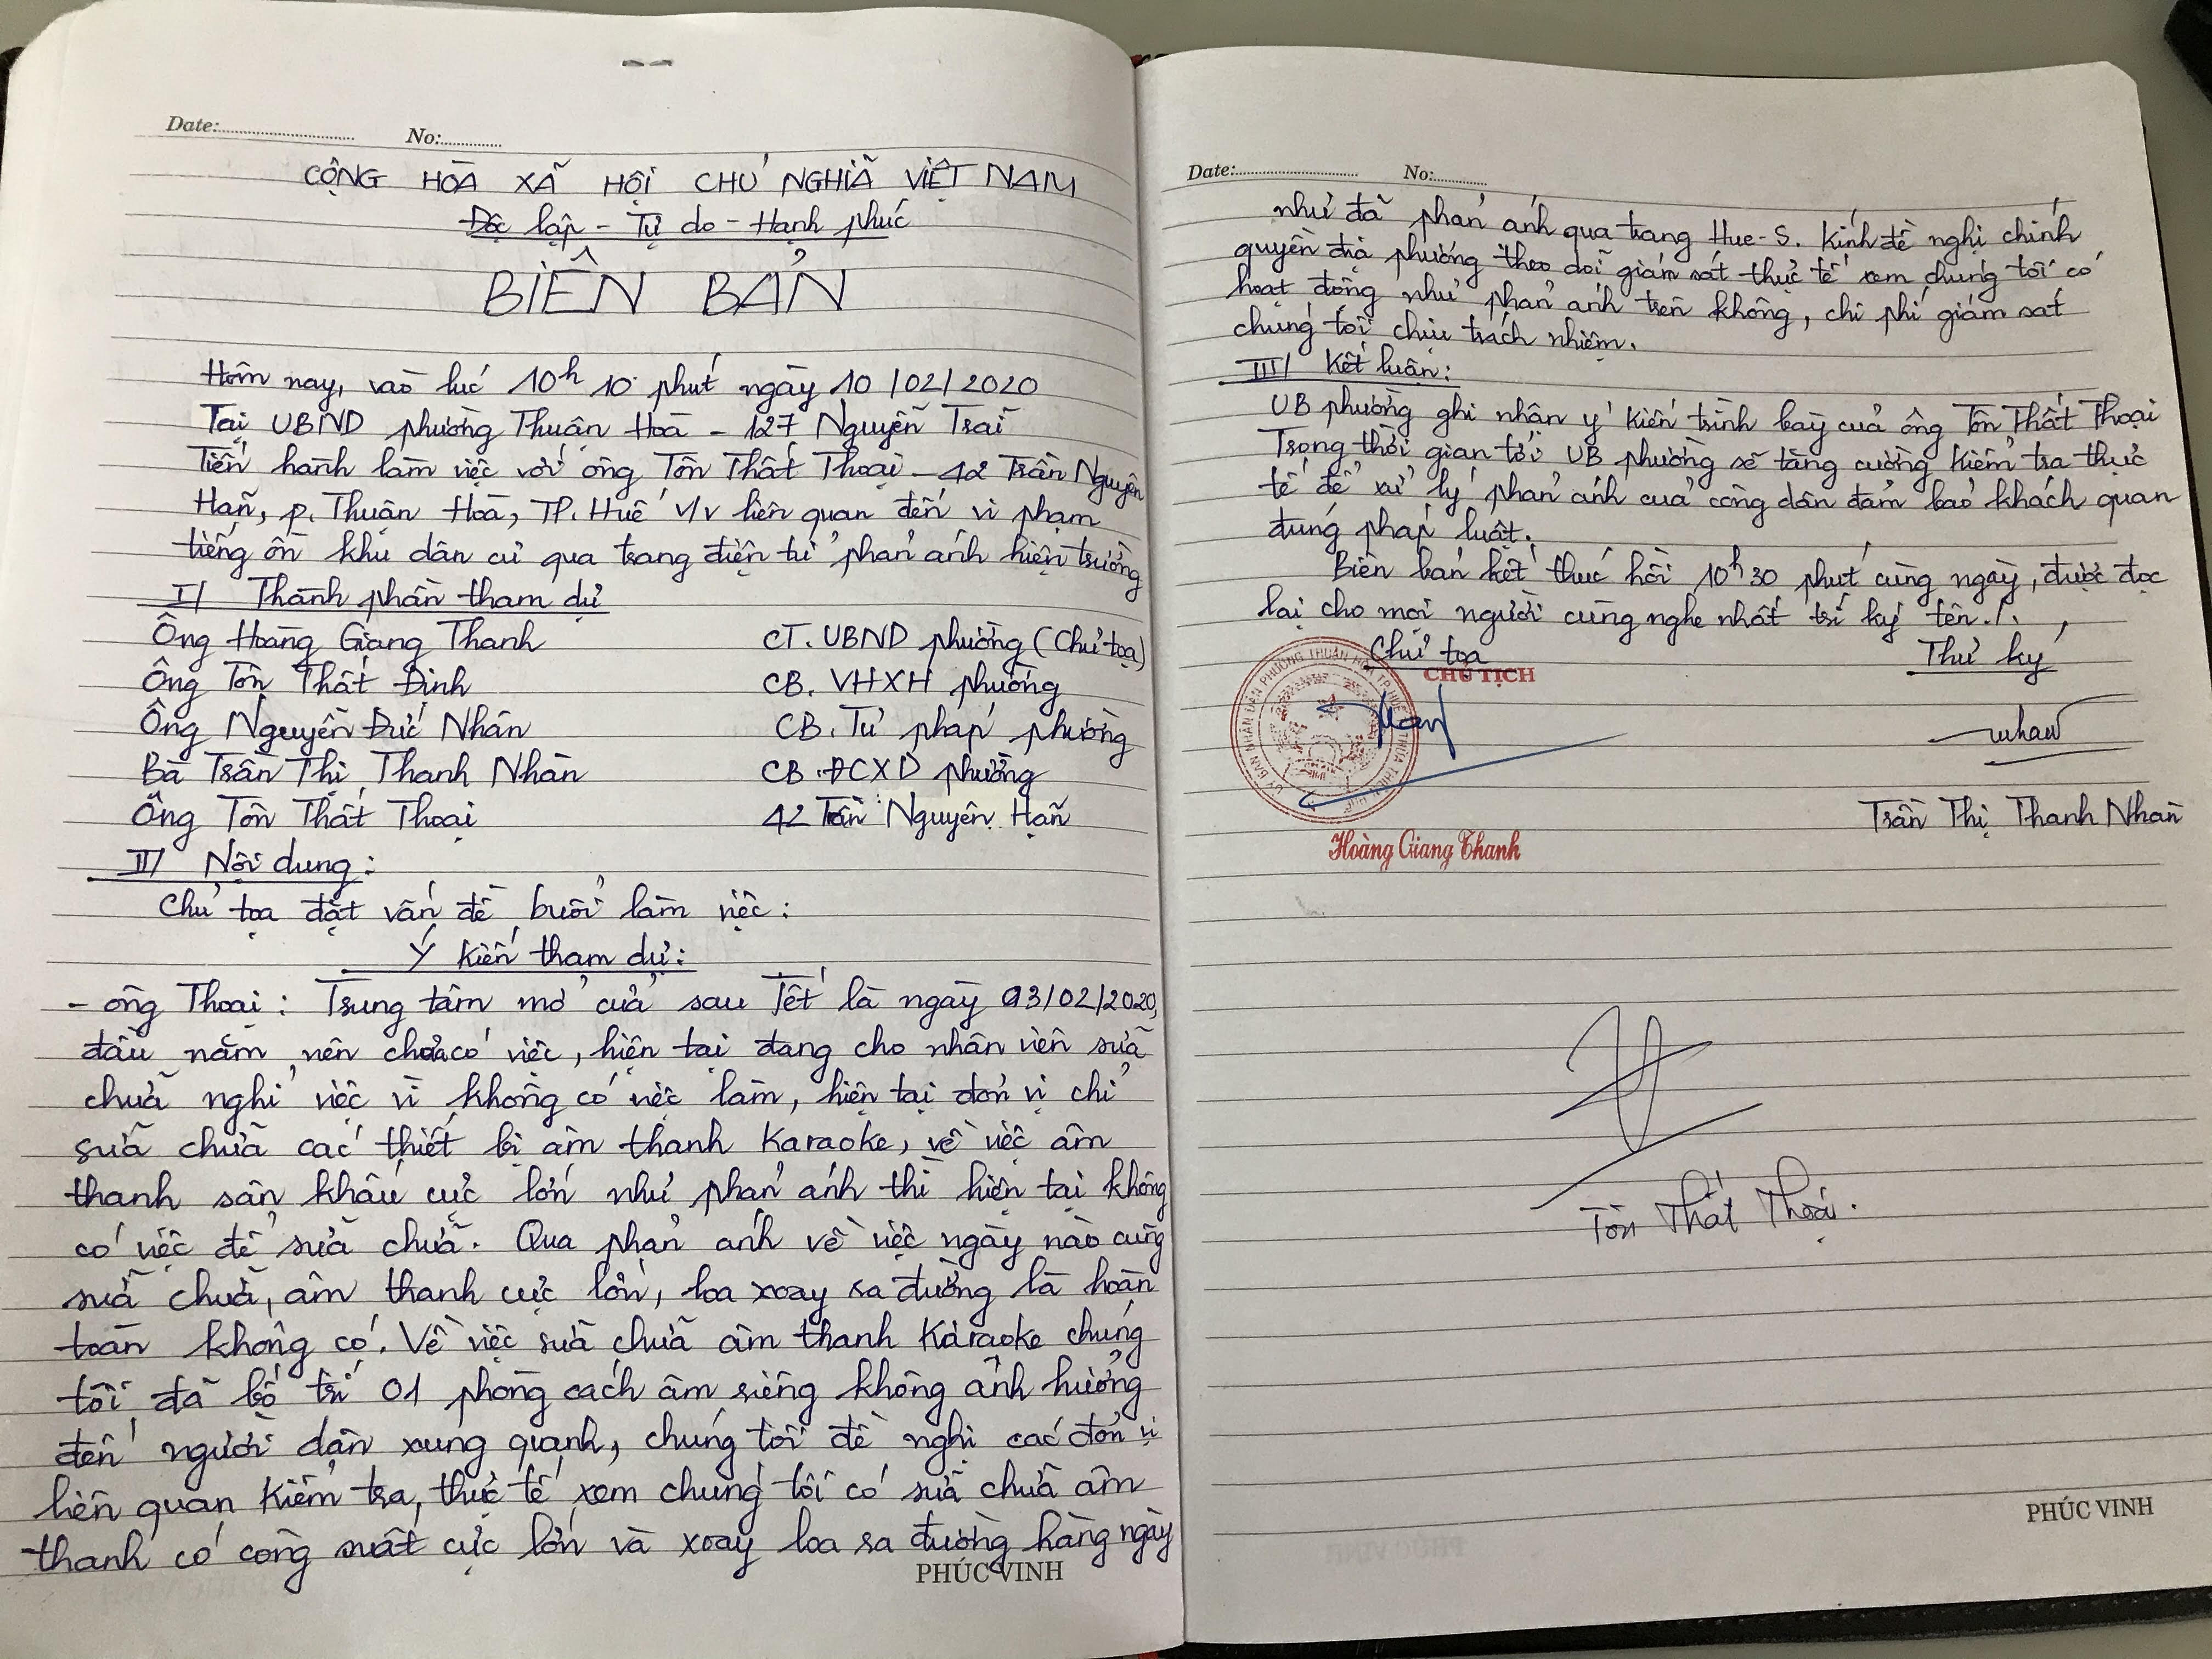 Date:........................ No:............
CỘNG HÒA XÃ HỘI CHỦ NGHĨA VIỆT NAM
Độc lập - Tự do - Hạnh phúc
BIÊN BẢN
Hôm nay, vào lúc 10h 10 phút ngày 10/02/2020
Tại UBND phường Thuận Hoà - 127 Nguyễn Trãi
Tiến hành làm việc với ông Tôn Thất Thoại - 42 Trần Nguyên
Hãn, p. Thuận Hoà, TP. Huế v/v liên quan đến vi phạm
tiếng ồn khu dân cư qua trang điện tử phản ánh hiện trường
I/ Thành phần tham dự
Ông Hoàng Giang Thanh CT. UBND phường (Chủ tọa)
Ông Tôn Thất Đình CB. VHXH phường
Ông Nguyễn Đức Nhân CB. Tư pháp phường
Bà Trần Thị Thanh Nhàn CB. ĐCXD phường
Ông Tôn Thất Thoại 42 Trần Nguyên Hãn
II/ Nội dung:
Chủ tọa đặt vấn đề buổi làm việc:
Ý kiến tham dự:
- ông Thoại: Trung tâm mở cửa sau Tết là ngày 03/02/2020,
đầu năm nên chưa có việc, hiện tại đang cho nhân viên sửa
chữa nghỉ việc vì không có việc làm, hiện tại đơn vị chỉ
sửa chữa các thiết bị âm thanh Karaoke, về việc âm
thanh sân khấu cực lớn như phản ánh thì hiện tại không
có việc để sửa chữa. Qua phản ánh về việc ngày nào cũng
sửa chữa, âm thanh cực lớn, loa xoay ra đường là hoàn
toàn không có. Về việc sửa chữa âm thanh Karaoke chúng
tôi đã bố trí 01 phòng cách âm riêng không ảnh hưởng
đến người dân xung quanh, chúng tôi đề nghị các đơn vị
liên quan kiểm tra, thực tế xem chúng tôi có sửa chữa âm
thanh có công suất cực lớn và xoay loa ra đường hàng ngày
PHÚC VINH
Date:........................ No:............
như đã phản ánh qua trang Hue-S. Kính đề nghị chính
quyền địa phương theo dõi giám sát thực tế xem chúng tôi có
hoạt động như phản ánh trên không, chi phí giám sát
chúng tôi chịu trách nhiệm.
III/ Kết luận:
UB phường ghi nhận ý kiến trình bày của ông Tôn Thất Thoại
Trong thời gian tới UB phường sẽ tăng cường kiểm tra thực
tế để xử lý phản ánh của công dân đảm bảo khách quan
đúng pháp luật.
Biên bản kết thúc hồi 10h30 phút cùng ngày, được đọc
lại cho mọi người cùng nghe nhất trí ký tên./.
Chủ tọa Thư ký
CHỦ TỊCH
ỦY BAN NHÂN DÂN PHƯỜNG THUẬN HÒA TP HUẾ
Nhan
Trần Thị Thanh Nhàn
Hoàng Giang Thanh
Tôn Thất Thoại.
PHÚC VINH